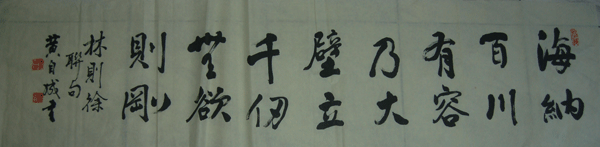 海納
百川
有容
乃大
壁立
千仞
無欲
則剛
林則徐
聯句
黄自成書